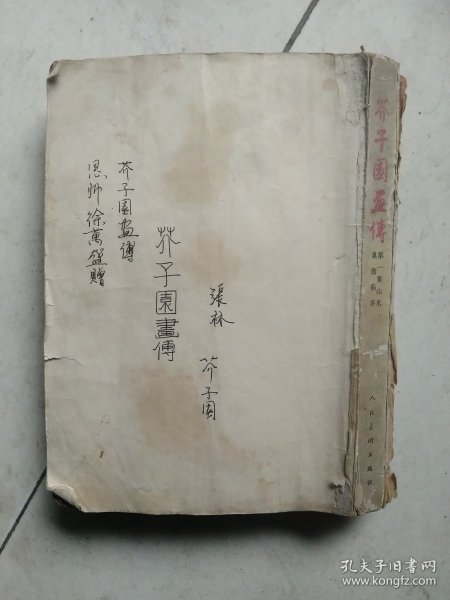 芥子園畫傳
第一集山水
巢勳临本
人民美术出版社
芥子园
張林
芥子園畫傳
芥子园畫傳
恩师徐萬盛贈
孔夫子旧书网
www.kongfz.com